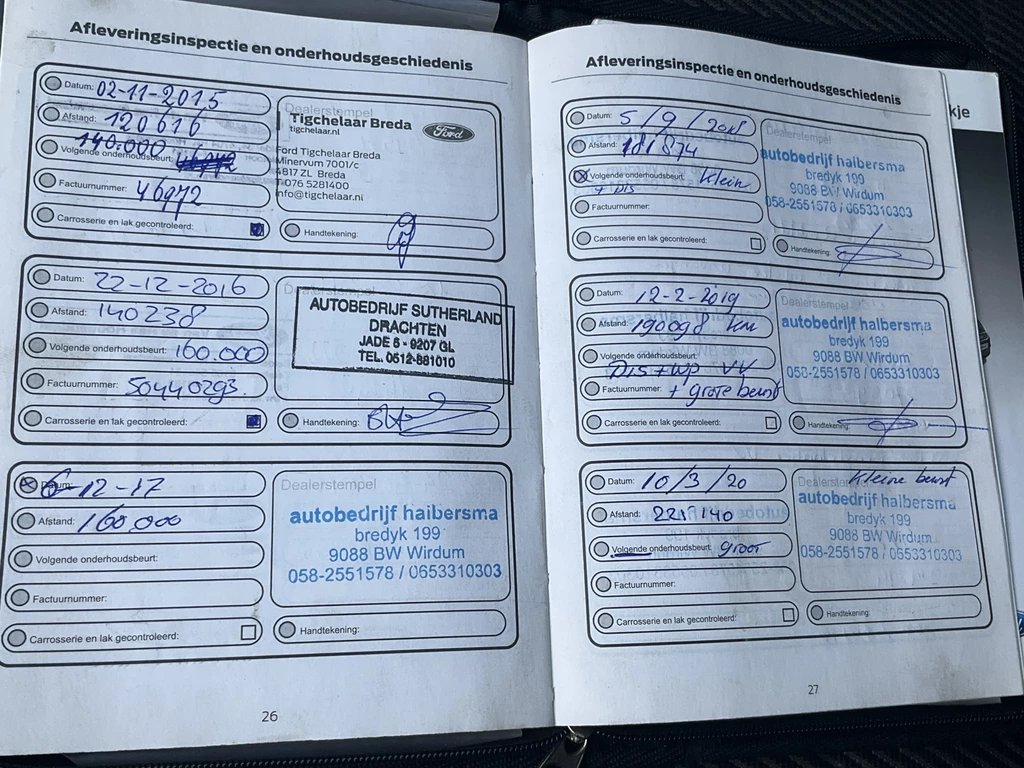 Afleveringsinspectie en onderhoudsgeschiedenis
Datum: 02-11-2015
Afstand: 120616
140.000
Volgende onderhoudsbeurt:
Factuurnummer: 46972
Carrosserie en lak gecontroleerd:
Dealerstempel
Tigchelaar Breda
tigchelaar.nl
Ford
Ford Tigchelaar Breda
Minervum 7001/c
4817 ZL Breda
T 076 5281400
info@tigchelaar.nl
Handtekening:
Datum: 22-12-2016
Afstand: 140238
Volgende onderhoudsbeurt: 160.000
Factuurnummer: 50440293.
Carrosserie en lak gecontroleerd:
AUTOBEDRIJF SUTHERLAND
DRACHTEN
JADE 6 - 9207 GL
TEL. 0512-881010
Handtekening:
Datum: 6-12-17
Afstand: 160.000
Volgende onderhoudsbeurt:
Factuurnummer:
Carrosserie en lak gecontroleerd:
Dealerstempel
autobedrijf halbersma
bredyk 199
9088 BW Wirdum
058-2551578 / 0653310303
Handtekening:
26
Afleveringsinspectie en onderhoudsgeschiedenis
Datum: 5/9/2018
Afstand: 181874
Volgende onderhoudsbeurt: Klein
+ Dis
Factuurnummer:
Carrosserie en lak gecontroleerd:
Dealerstempel
autobedrijf halbersma
bredyk 199
9088 BW Wirdum
058-2551578 / 0653310303
Handtekening:
Datum: 12-2-2019
Afstand: 190098 km
Volgende onderhoudsbeurt:
Dis + WP VV
Factuurnummer: + grote beurt
Carrosserie en lak gecontroleerd:
Dealerstempel
autobedrijf halbersma
bredyk 199
9088 BW Wirdum
058-2551578 / 0653310303
Handtekening:
Datum: 10/3/20
Afstand: 221 140
Volgende onderhoudsbeurt: groot
Factuurnummer:
Carrosserie en lak gecontroleerd:
Dealerstempel Kleine beurt
autobedrijf halbersma
bredyk 199
9088 BW Wirdum
058-2551578 / 0653310303
Handtekening:
27
kje